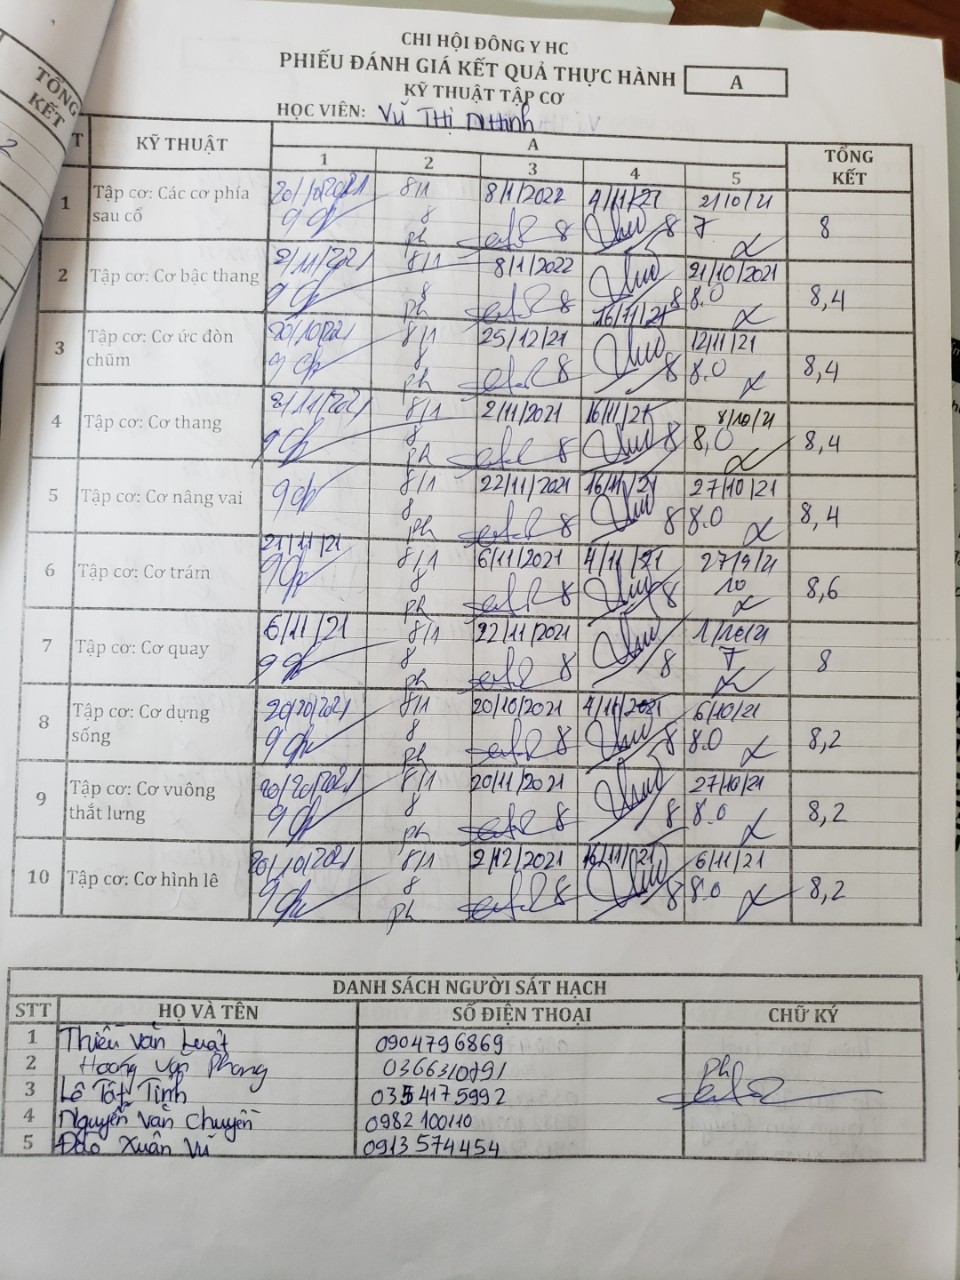 TỔNG KẾT
2
CHI HỘI ĐÔNG Y HC
PHIẾU ĐÁNH GIÁ KẾT QUẢ THỰC HÀNH A
KỸ THUẬT TẬP CƠ
HỌC VIÊN: Vũ Thị
T KỸ THUẬT A TỔNG KẾT
1 2 3 4 5
1 Tập cơ: Các cơ phía sau cổ 9 8/1 8 ph 8/1/2022 8 4/11/21 8 21/10/21 7 8
2 Tập cơ: Cơ bậc thang 2/11/2021 9 8/1 8 ph 8/1/2022 8 8 21/10/2021 8.0 8,4
3 Tập cơ: Cơ ức đòn chũm 20/10/2021 9 8/1 8 ph 25/12/21 8 16/11/21 8 12/11/21 8.0 8,4
4 Tập cơ: Cơ thang 2/11/2021 9 8/1 8 ph 2/11/2021 8 16/11/21 8 8/10/21 8,0 8,4
5 Tập cơ: Cơ nâng vai 9 8/1 8 ph 22/11/2021 8 16/11/21 8 27/10/21 8.0 8,4
6 Tập cơ: Cơ trám 21/11/21 9 8/1 8 ph 6/11/2021 8 4/11/21 8 27/9/21 10 8,6
7 Tập cơ: Cơ quay 6/11/21 9 8/1 8 ph 22/11/2021 8 8 7 8
8 Tập cơ: Cơ dựng sống 20/20/2021 9 8/1 8 ph 20/10/2021 8 4/11/2021 8 6/10/21 8.0 8,2
9 Tập cơ: Cơ vuông thắt lưng 9 8/1 8 ph 20/11/2021 8 8 27/10/21 8.0 8,2
10 Tập cơ: Cơ hình lê 20/10/2021 9 8/1 8 ph 2/12/2021 8 16/11/21 8 6/11/21 8.0 8,2
DANH SÁCH NGƯỜI SÁT HẠCH
STT HỌ VÀ TÊN SỐ ĐIỆN THOẠI CHỮ KÝ
1 Thiều Văn Luật 0904796869
2 Hoàng Văn Phong 0366310791 Ph
3 Lê Tất Tính 0354175992
4 Nguyễn Văn Chuyền 0982100110
5 Đào Xuân Vũ 0913574454